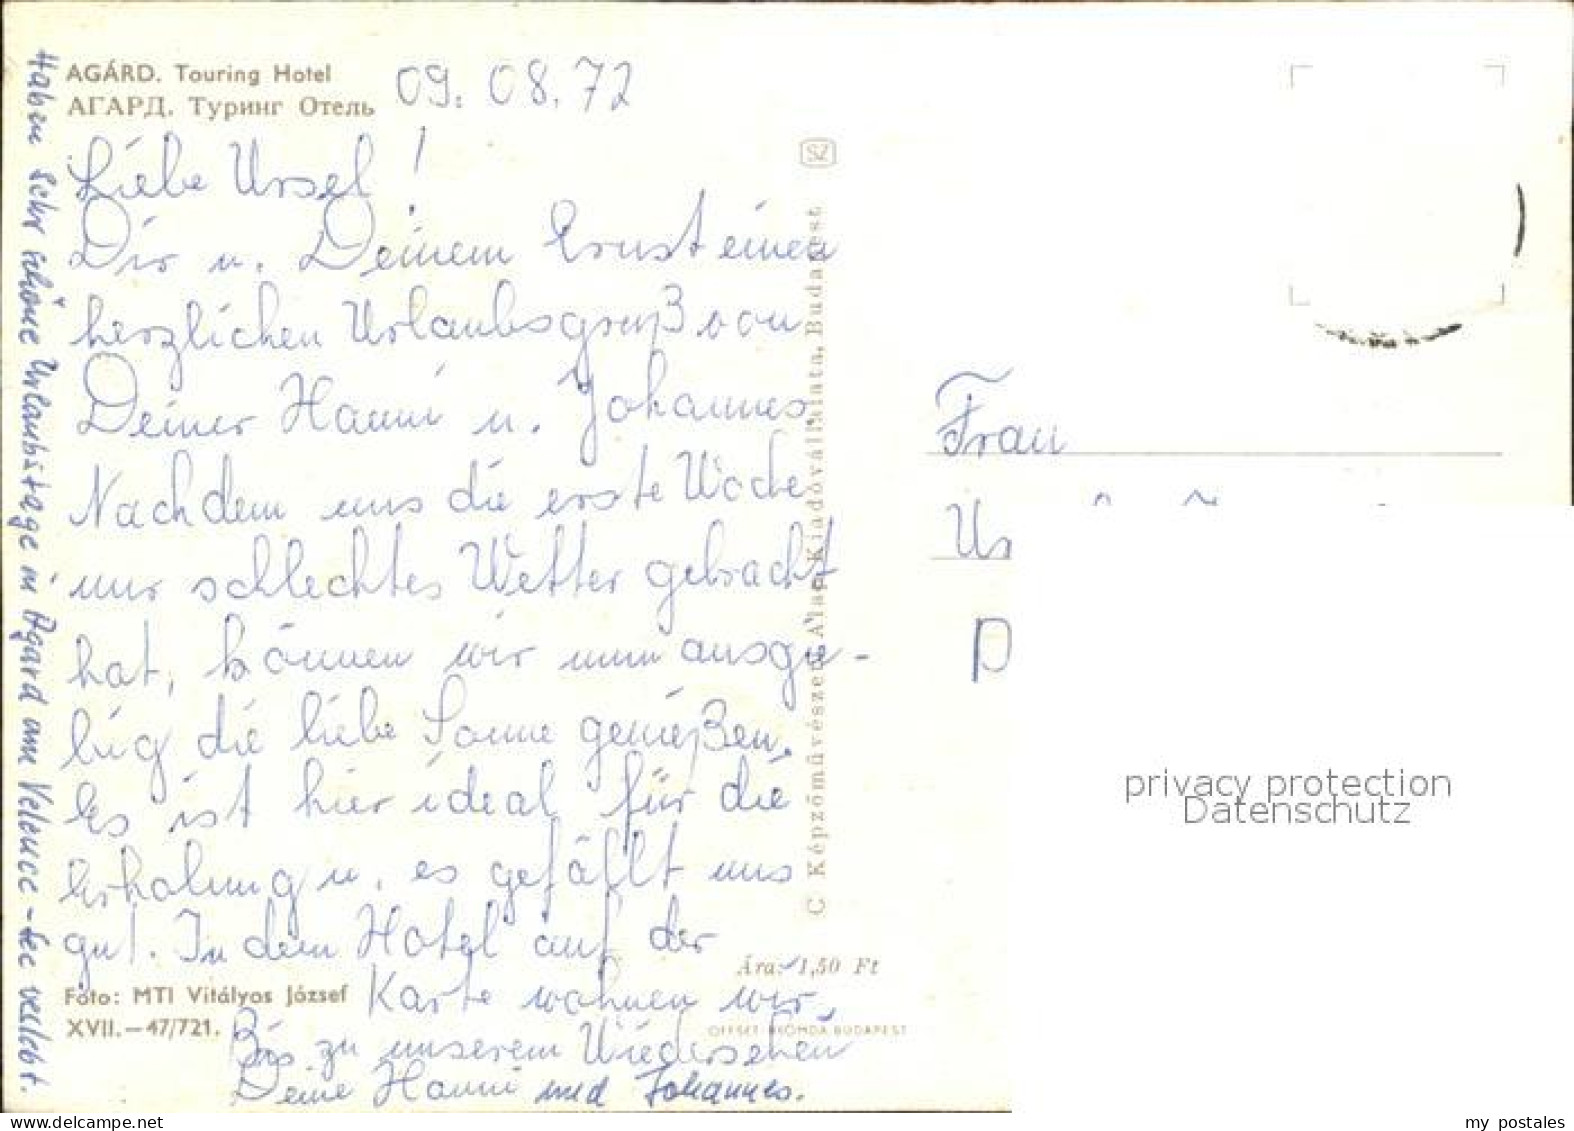 AGÁRD. Touring Hotel
АГАРД. Туринг Отель
09. 08. 72
Liebe Ursel!
Dir u. Deinem Ernst einen
herzlichen Urlaubsgruß von
Deiner Hanni u. Johannes
Nachdem uns die erste Woche
nur schlechtes Wetter gebracht
hat, können wir nun ausgie-
big die liebe Sonne genießen.
Es ist hier ideal für die
Erholung u. es gefällt uns
gut. In dem Hotel auf der
Karte wohnen wir.
Bis zu unserem Wiedersehen
Deine Hanni und Johannes.
Haben sehr schöne Urlaubstage in Agard am Velence-See verlebt.
Foto: MTI Vitályos József
XVII.—47/721.
Ára: 1,50 Ft
OFFSET NYOMDA BUDAPEST
SZ
C Képzőművészeti Alap Kiadóvállalata, Budapest
Frau
privacy protection
Datenschutz
my postales